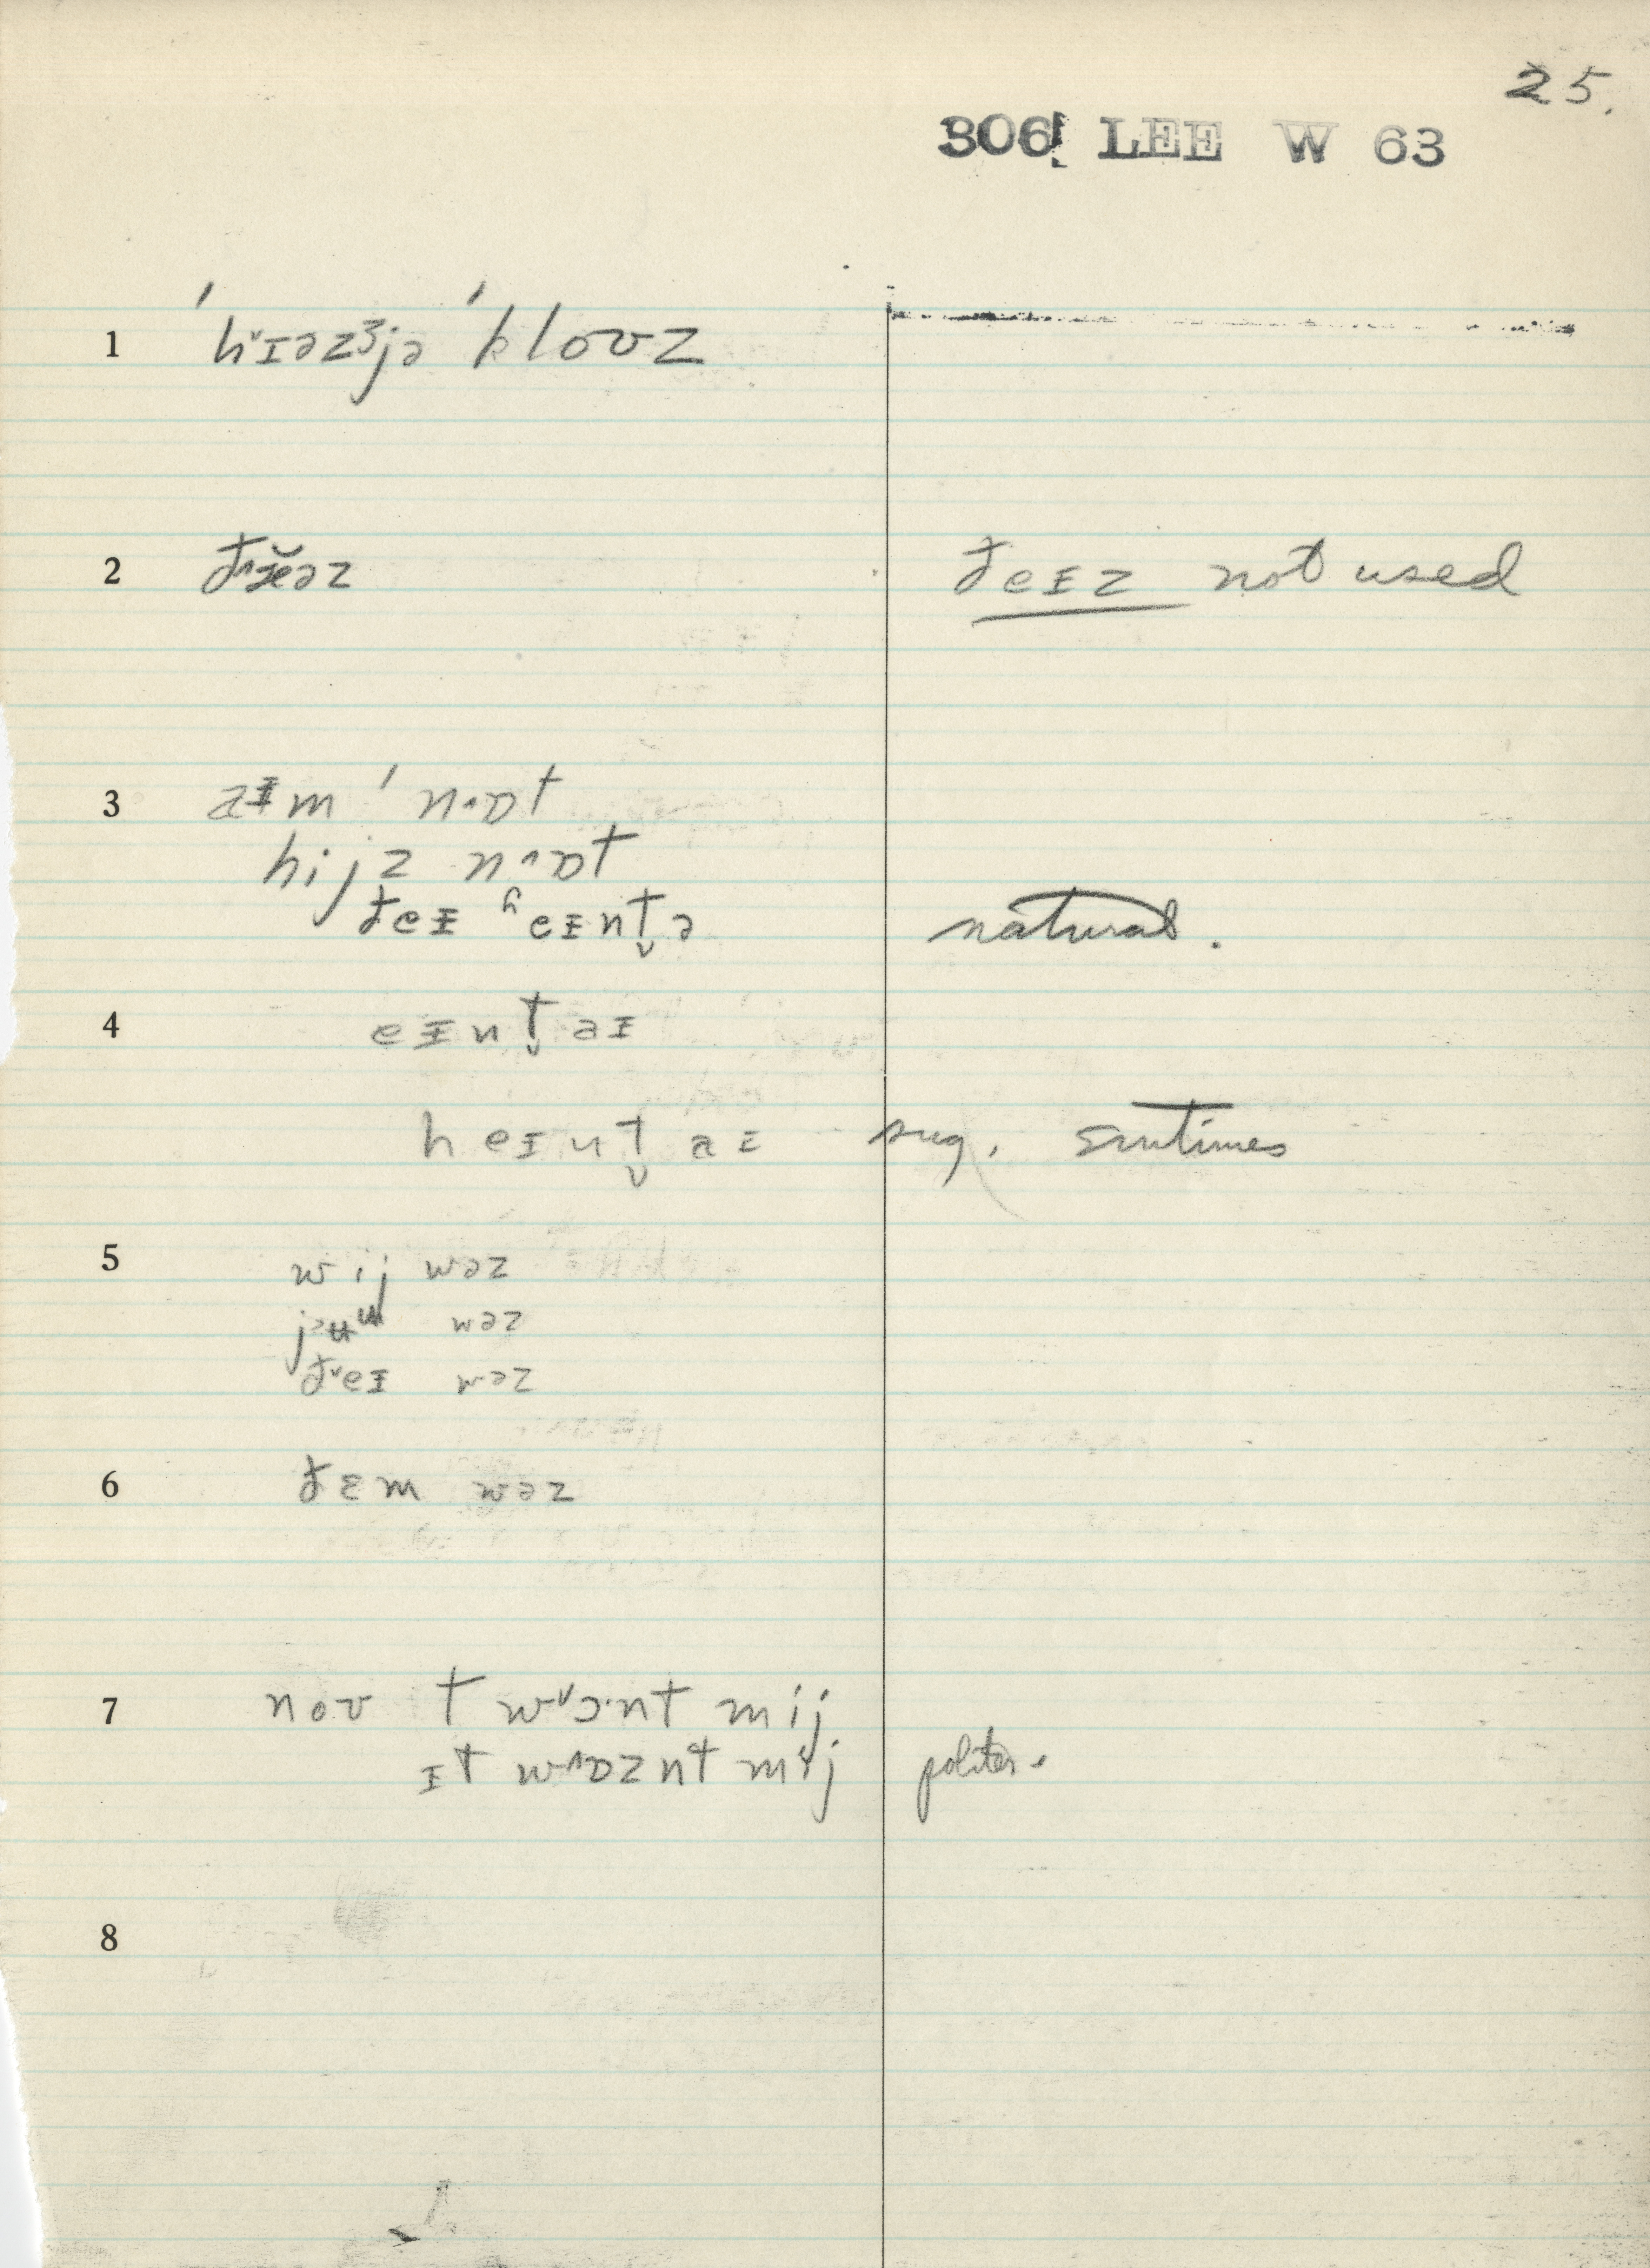 25.
306! LEE W 63
1 ˈhˇɪəzᶾjə ˈklouz
2 əz đeɪz not used
3 aɪm ˈn·ɒt
hijz n^ɒt
đeɪ ʰeɪnt̬ə natural.
4 eɪnt̬ aɪ
heɪnt̬ aɪ sug. smtimes
5 wij wəz
wəz
đˇeɪ wəz
6 đɛm wəz
7 noʊ t wˇɔ·nt mij
ɪt w^ɒznt mij politer.
8